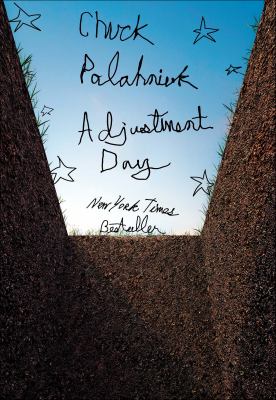 Chuck
Palahniuk
Adjustment
Day
New York Times
Bestseller